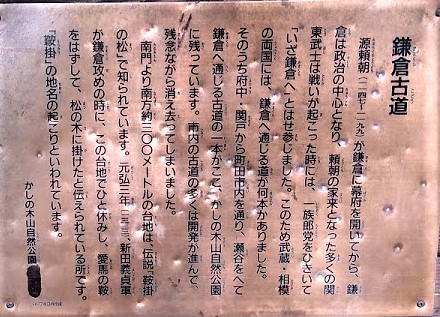 鎌倉古道
源頼朝(一一四七~一一九九)が鎌倉に幕府を開いてから、鎌
倉は政治の中心となり、頼朝の家来となった多くの関
東武士は戦いが起こった時には、一族郎党をひきいて
「いざ鎌倉へ」とはせ参じました。このため武蔵・相模
の両国には、鎌倉へ通じる道が何本かありました。
そのうち府中・関戸から町田市内を通り、瀬谷をへて
鎌倉へ通じる古道の一本がここ、かしの木山自然公園
に残っています。市内の古道の多くは開発が進んで、
残念ながら消え去ってしまいました。
南門より南方約三〇〇メートルの台地は、伝説「鞍掛
の松」で知られています。元弘三年(一三三三)新田義貞軍
が鎌倉攻めの時に、この台地でひと休みし、愛馬の鞍
をはずして、松の木に掛けたと伝えられている所です。
「鞍掛」の地名の起こりといわれています。
かしの木山自然公園